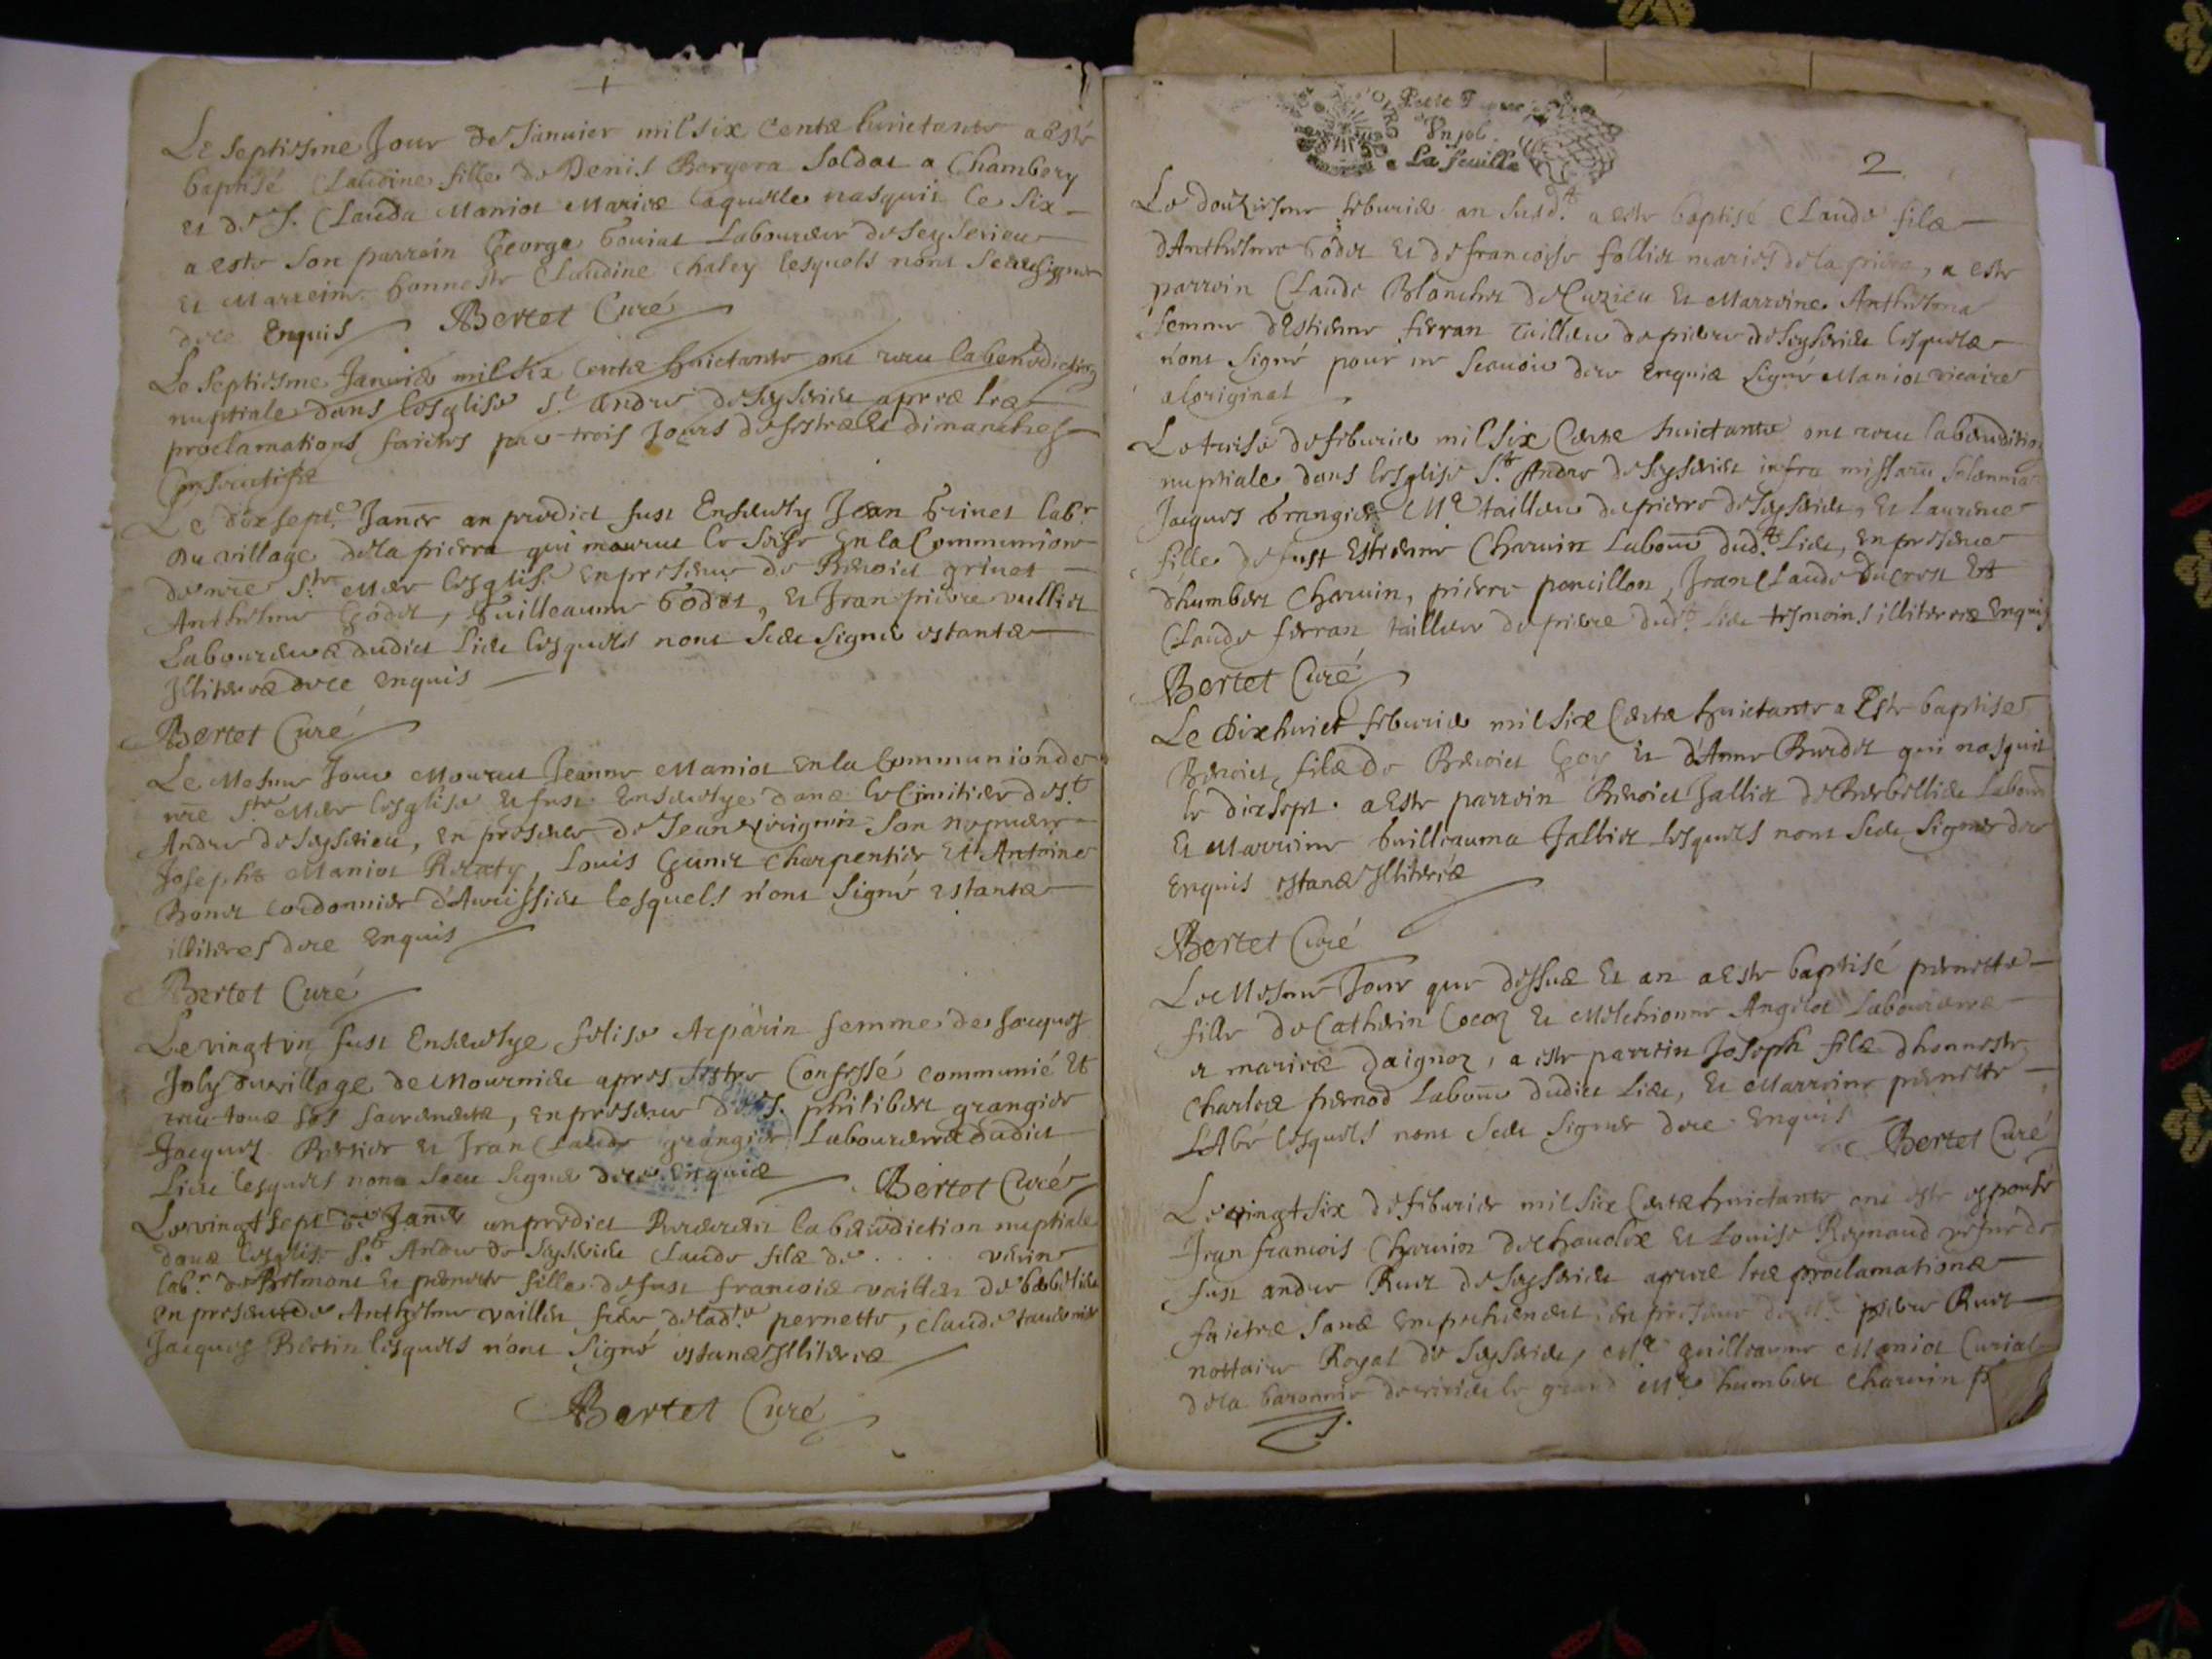 Le septiesme Jour de Januier mil six Centz huictante a esté
baptisé Claudine fille de Denis Bergera soldat a Chambery
et de J. Clauda Maniot Mariez laquelle nasquit le six
a este son parrein George Goniat Laboureur de Seyserieu
Et Marreine honneste Claudine Chaley lesquels nont sceu signer
de ce Enquis Bertet Curé
Le septiesme Januier mil six Centz huictante ont receu la benediction
nuptiale dans lesglise St. André de Seyserieu apres les
proclamations faictes par trois Jours de festes et dimanches
Consecutifs
Le dixsept.e Janer an predict fust Enseuely Jean Grinet labr.
Du village de la pierre qui mourut le seise En la Communion
de nre Ste. Mere lesglise En presence de Benoict grinet
Anthelme Godet, Guilleaume Godet, et Jean pierre vulliet
Laboureurs dudict Lieu lesquels nont sceu signer estants
Illiterez de ce enquis
Bertet Curé
Le Mesme Jour Mourut Jeanne Maniot En la Communion de
nre Ste. Mere lesglise et fust Enseuelye dans le Cimitiere de St.
André de Seyserieu, en presence de Jean son nepueu
Joseph Maniot, Louis Gunet Charpentier Et Antoine
Bonet cordonnier d'Aurissieu lesquels n'ont signé estants
illiteres de ce Enquis
Bertet Curé
Le vingt vn fust Enseuelye felise Arparin femme de Jacques
Joly du village de Mournieu apres s'estre Confessé communié Et
receu tous ses sacrements, en presence de J. philibert grangier
Jacques Bersier et Jean Claude grangier Laboureurs dudict
Lieu lesquels nont sceu signer de ce Enquis Bertet Curé
Le vingt sept de Janer an predict Receurent la benediction nuptiale
dans lesglise St. André de Seyserieu Claude filz de . . . .
labr. de Belmont et pernette fille de fust francois vaillet de
en presence de Anthelme vaillet frere de lad.te pernette, Claude
Jacques Bertin lesquels n'ont signé estans Illiterez
Bertet Curé
Vn sol
La feuille
2
Le douziesme feburier an susd.t a este baptisé Claude filz
d'Anthelme Godet Et de francoise folliet mariés de la pierre, a este
parrein Claude Blanchet de Cuzieu Et Marreine Anthelma
femme d'Estienne ferran tailleur de pierre de Seyserieu lesquels
n'ont signé pour ne scauoir de ce Enquis signé Maniot vicaire
a loriginal
Le treise de feburier mil six Centz huictante ont receu la benediction
nuptiale dans lesglise St. André de Seyserieu infra missaru solemnia
Jacques Grangier Me tailleur de pierre de Seyserieu, et Laurence
fille de fust Estienne Charuin Labour dud.t Lieu, en presence
d'humbert Charuin, pierre poncillon, Jean Claude Ducret Et
Claude ferran tailleur de pierre dud.t Lieu tesmoins illiterez Enquis
Bertet Curé
Le Dixhuict feburier mil six Centz huictante a Esté baptisé
Benoict filz de Benoict Goy Et d'Anne Burdet qui nasquit
le dixsept. a Este parrein Benoict Jalliet de Berbellieu Labour
Et Marreine Guilleauma Jalliet lesquels nont sceu signer de ce
Enquis estans Illiterés
Bertet Curé
Le Mesme Jour que dessus Et an a Este baptisé pernette
fille de Catherin Cocoz Et Melchionne Angelot Laboureurs
et mariez daignoz, a este parrein Joseph filz dhonneste
Charles pernod Labour dudict Lieu, Et Marreine pernette
L'Abé lesquels nont sceu signer de ce Enquis
Bertet Curé
Le vingt six de feburier mil six Centz huictante ont este espousé
Jean francois Charuiot de Et Louise Reynaud vefue de
fust andré Ruet de Seyserieu apres les proclamations
faictes sans Empechement, en presence de Me. pierre Ruet
nottaire Royal de Seyserieu, Me guilleaume Maniot Curial
de la baronnie de virieu le grand Me humbert Charuin